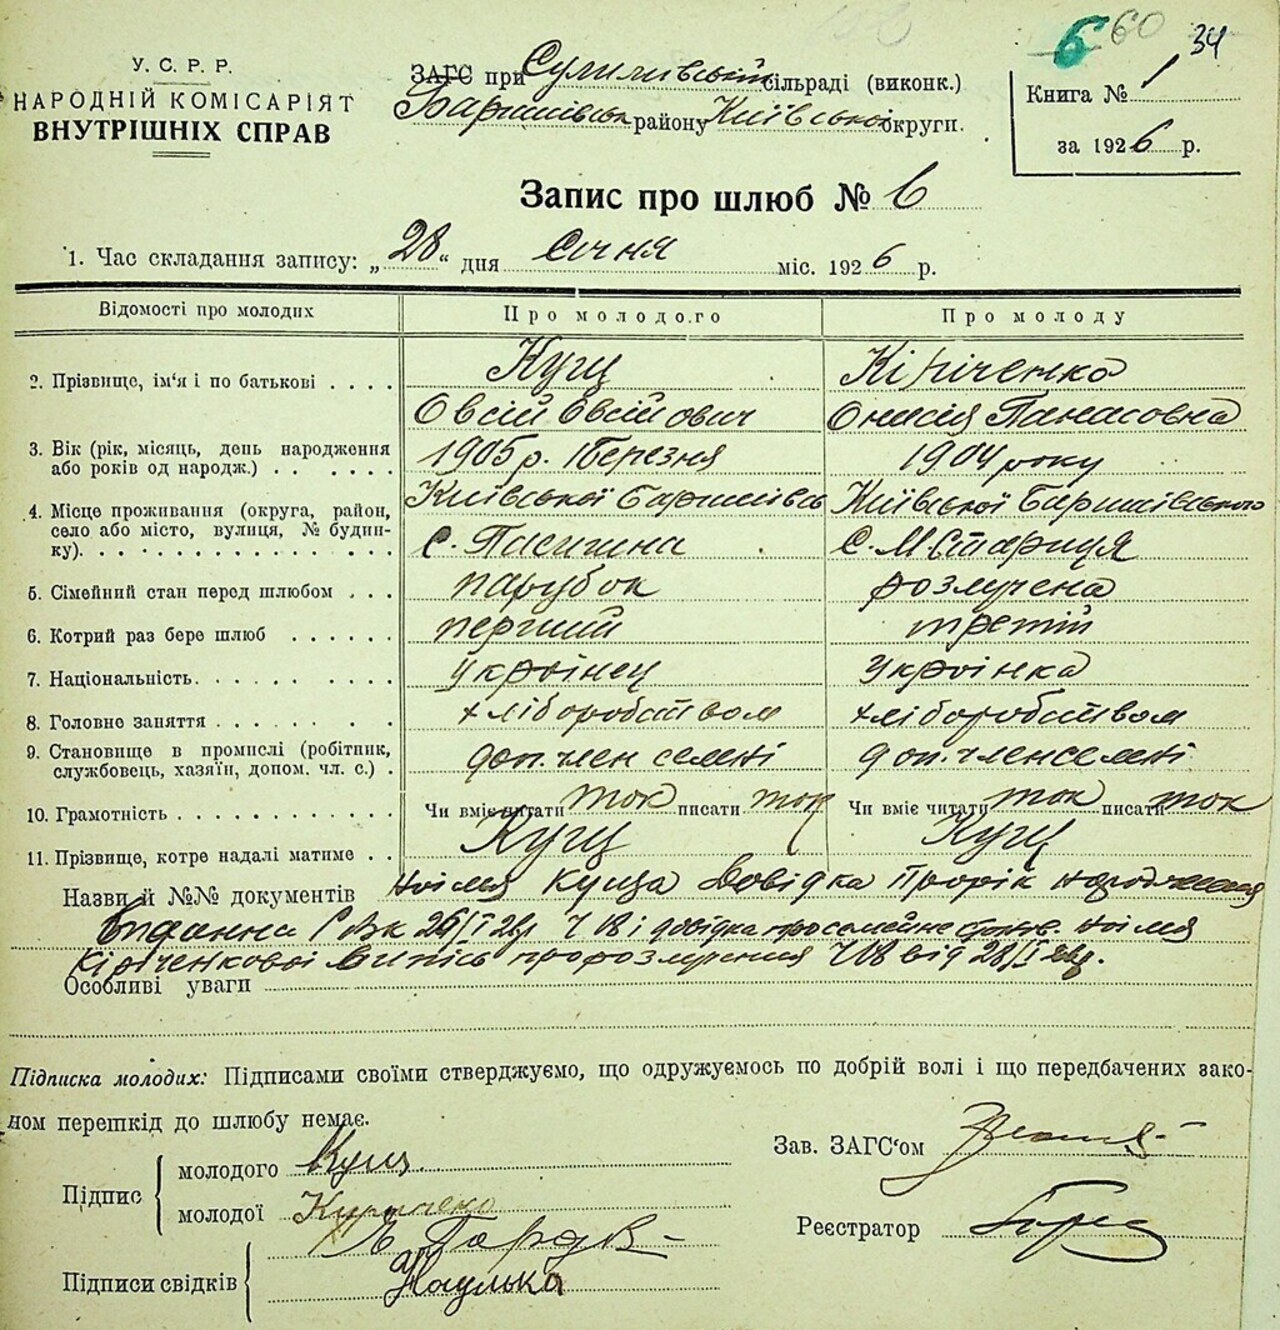 6 60 34
У. С. Р. Р.
НАРОДНІЙ КОМІСАРІЯТ
ВНУТРІШНІХ СПРАВ
ЗАГС при Сулимівській сільраді (виконк.)
Баришівськ району Київської округи.
Книга № 1
за 1926 р.
Запис про шлюб № 6
1. Час складання запису: „28“ дня Січня міс. 1926 р.
Відомості про молодих Про молодого Про молоду
2. Прізвище, ім'я і по батькові . . . . Кущ Кіріченко
Овсій Овсійович Онисія Панасовна
3. Вік (рік, місяць, день народження або років од народж.) . . . . . . 1905 р. 1 Березня 1904 року
4. Місце проживання (округа, район, село або місто, вулиця, № будинку). Київської Баришівськ Київської Баришівського
с. Пасішна с. М. Стариця
5. Сімейний стан перед шлюбом . . . парубок розлучена
6. Котрий раз бере шлюб . . . . . . перший третій
7. Національність. . . . . . . . . . українец українка
8. Головне заняття . . . . . . . . хліборобством хліборобством
9. Становище в промислі (робітник, службовець, хазяїн, допом. чл. с.) . доп. член семні доп. член семні
10. Грамотність . . . . . . . . . . . Чи вміє читати так писати так Чи вміє читати так писати так
11. Прізвище, котре надалі матиме . . Кущ Кущ
Назви й №№ документів На імя Куща Довідка Про рік народження
Виданна РВК 26/I 26р Ч 18 і довідка про семейне станов. на імя
Кіріченкової Випись про розлучення Ч 18 від 28/I 26р.
Особливі уваги
Підписка молодих: Підписами своїми стверджуємо, що одружуємось по добрій волі і що передбачених зако-
ном перешкід до шлюбу немає.
Підпис
молодого Кущ
молодої Кириченко
Підписи свідків
Наулька
Зав. ЗАГС'ом
Реєстратор